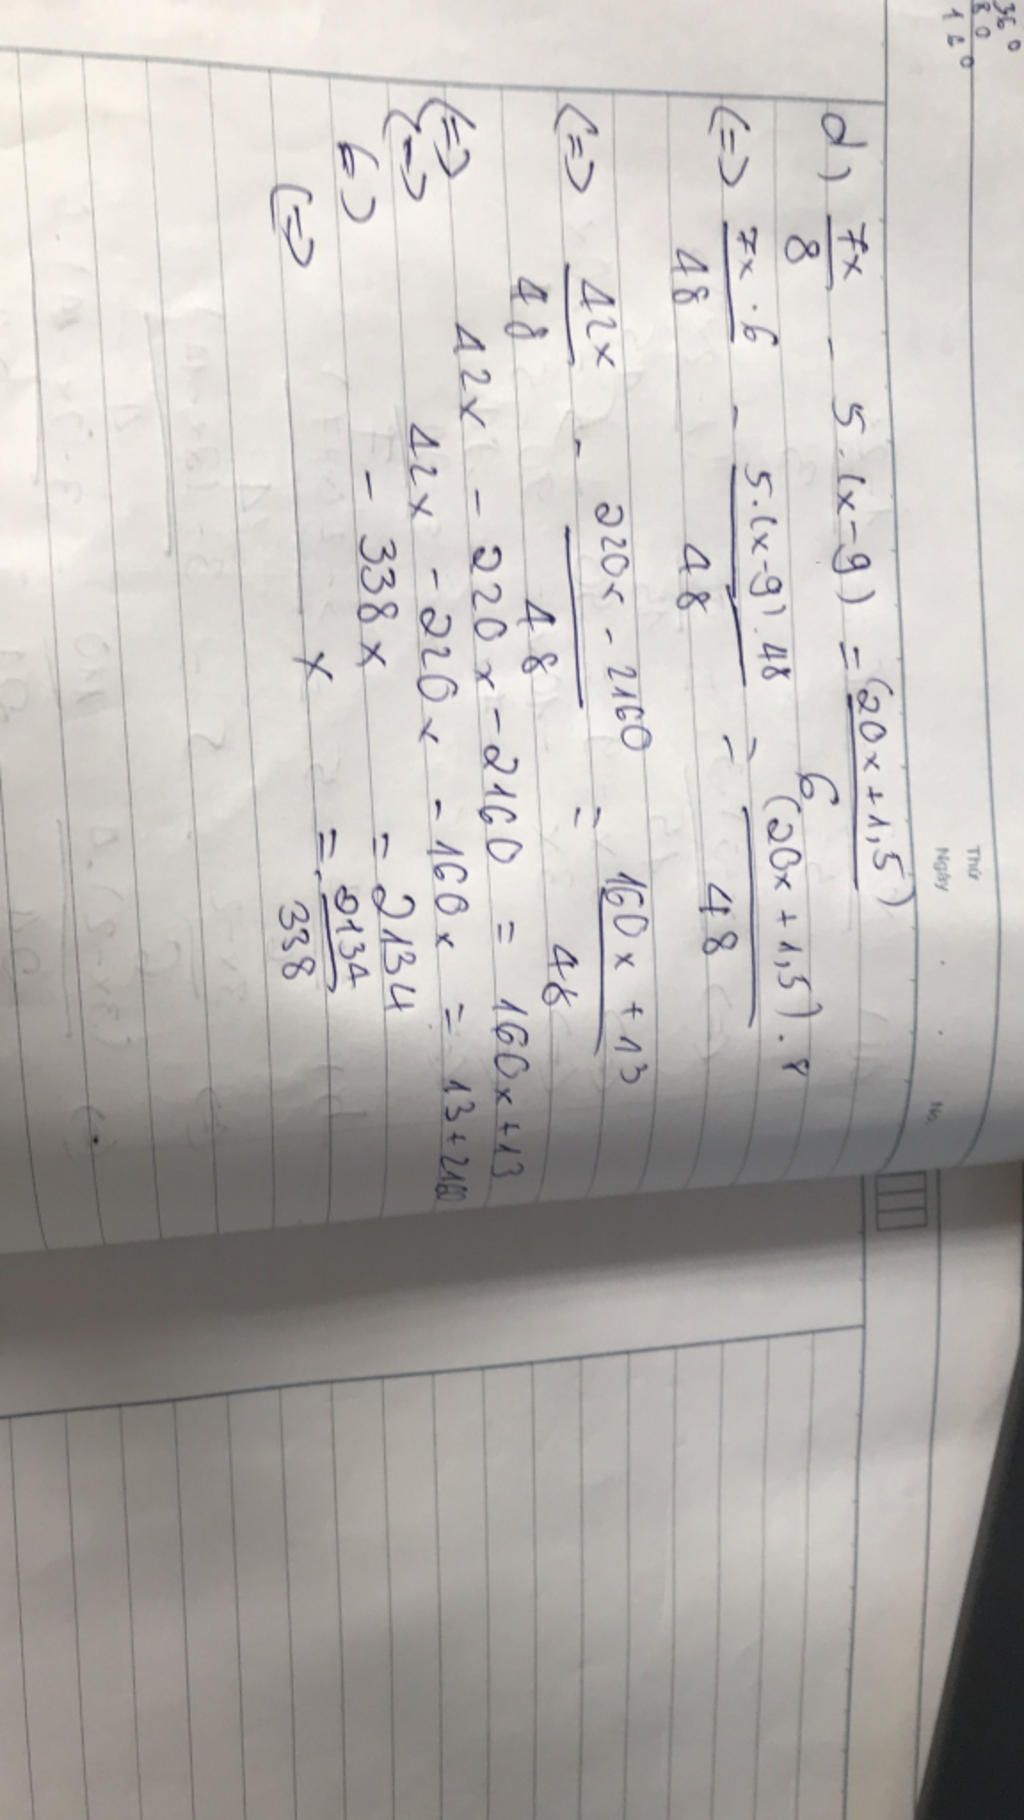 360
80
160
Thứ
Ngày . . No.
d) 7x/8 - 5.(x-9) = (20x+1,5)/6
(=) 7x.6/48 - 5.(x-9).48/48 = (20x+1,5).8/48
(=) 42x/48 - 220x-2160/48 = 160x+13/48
(=) 42x - 220x - 2160 = 160x+13
(=) 42x - 220x - 160x = 13+2160
(=) - 338x = 2134
(=) x = - 2134/338